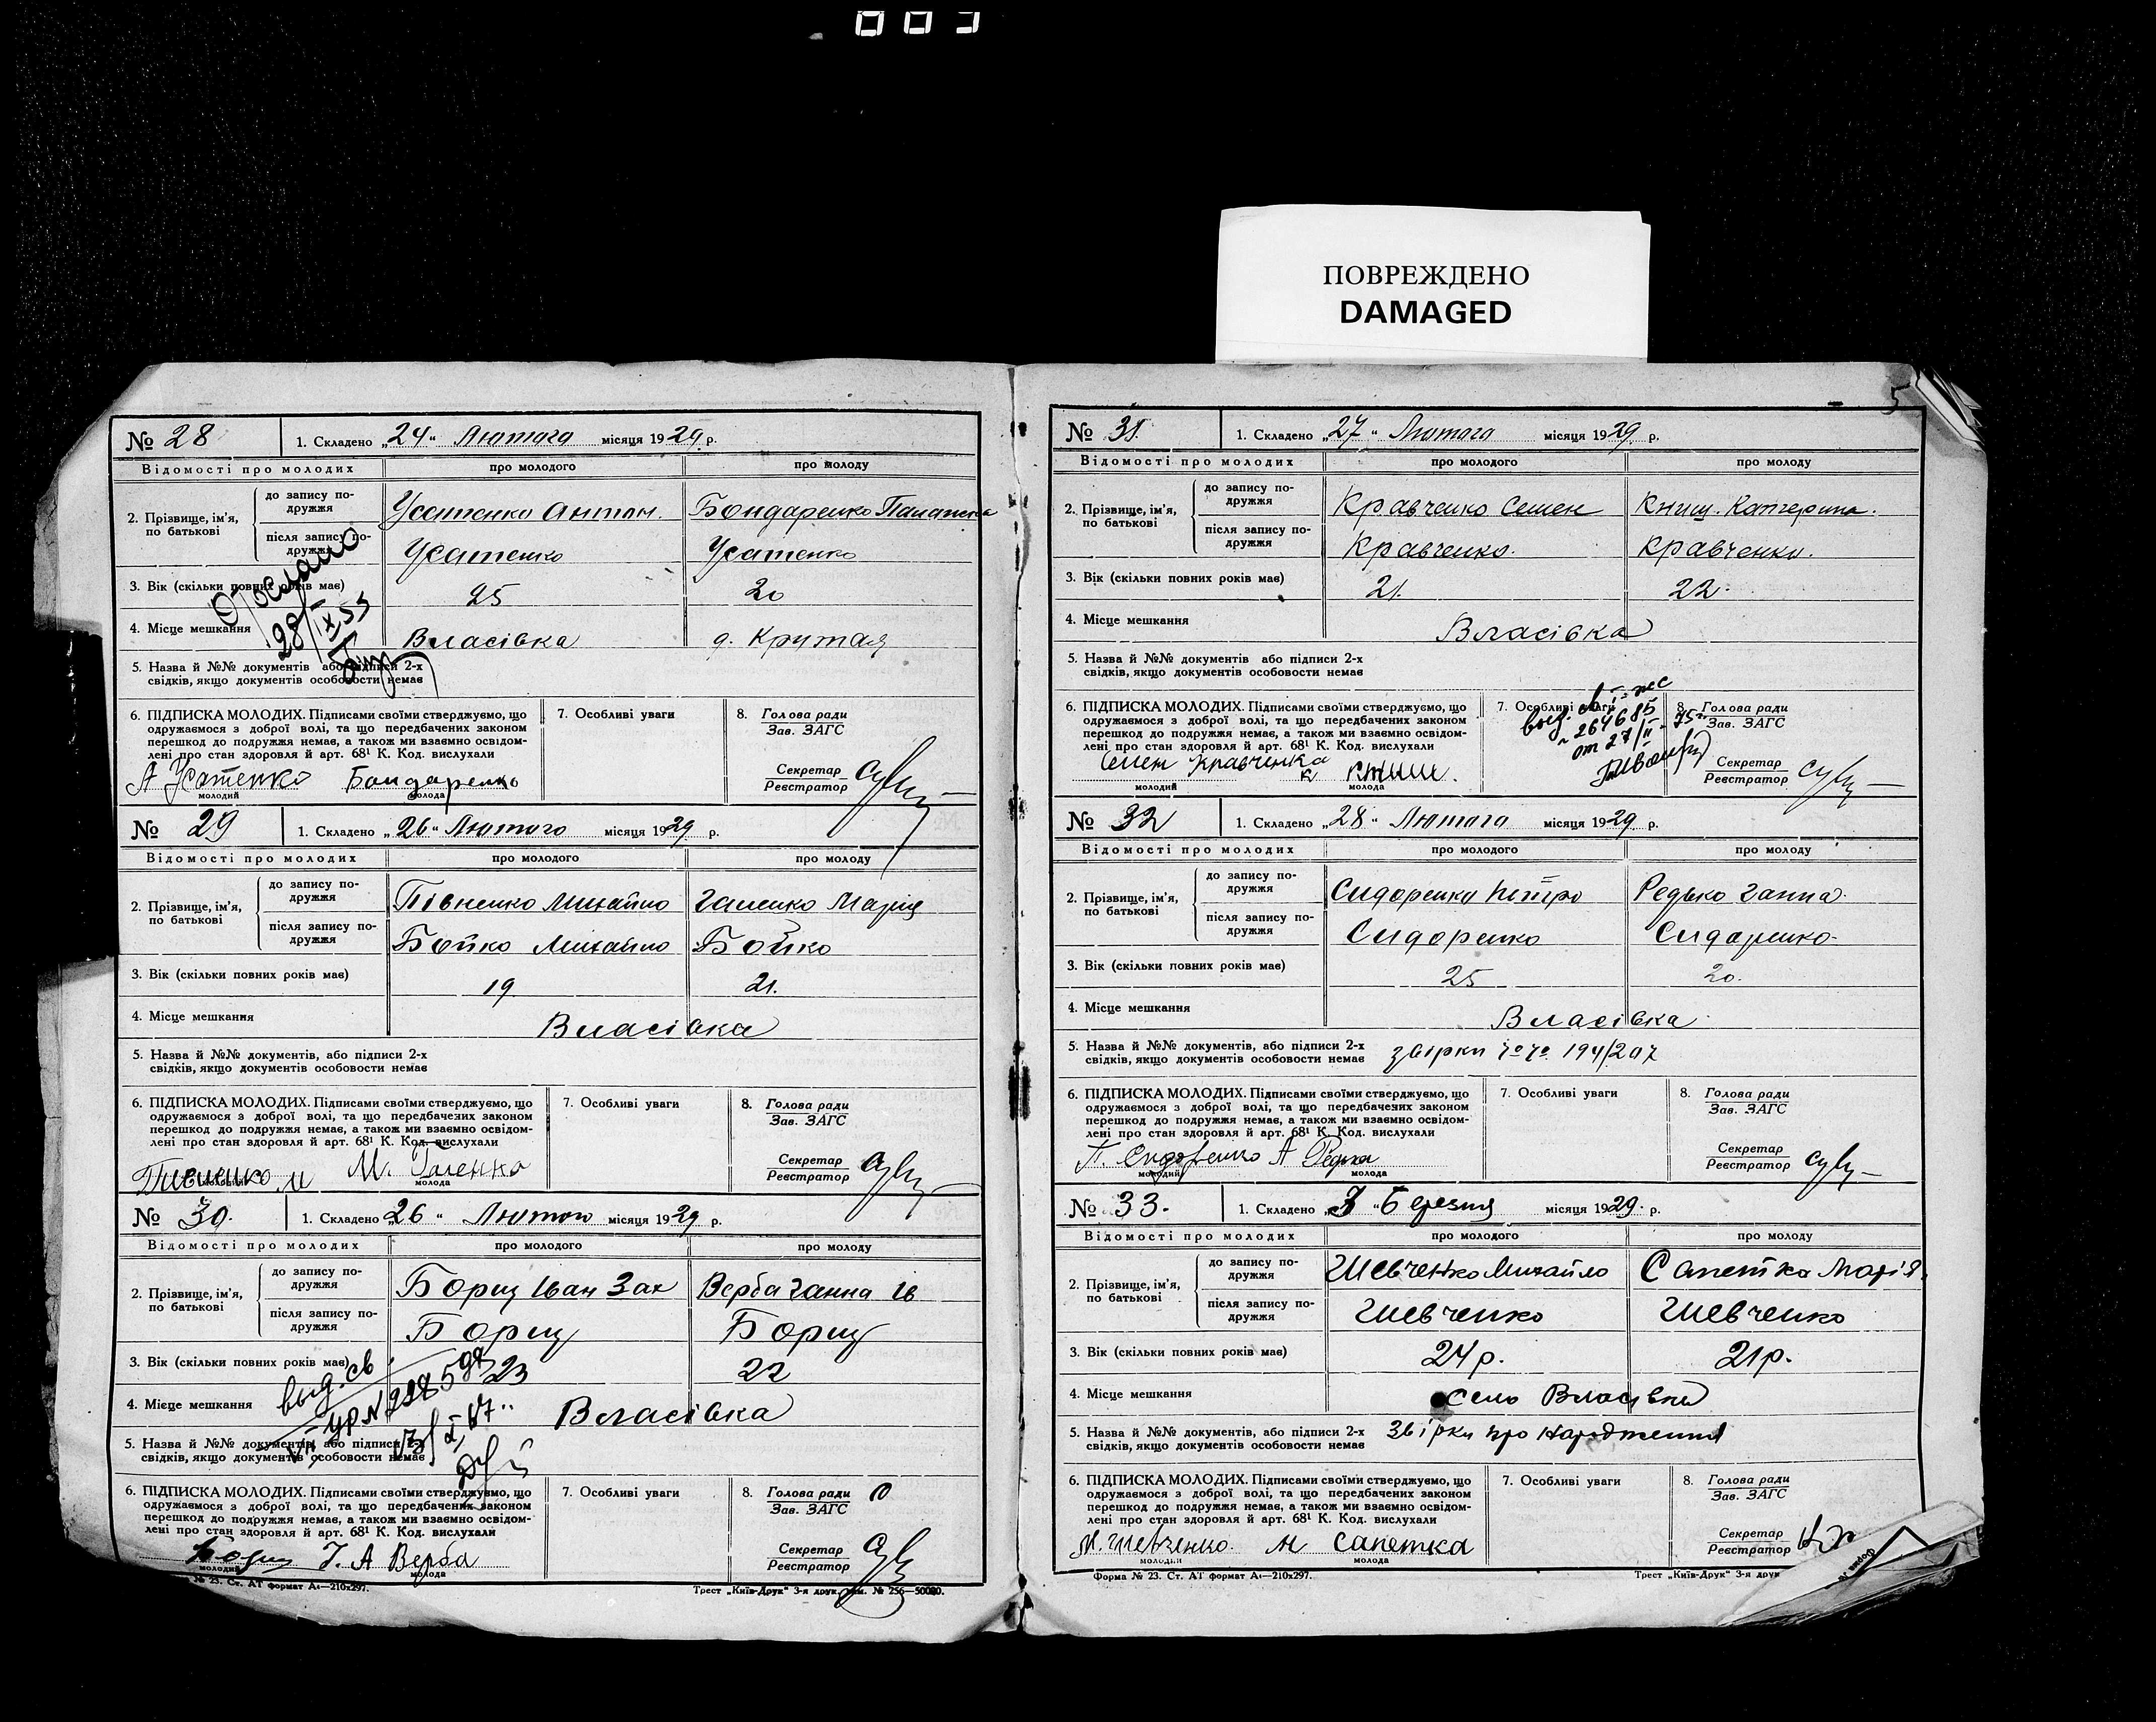 003
ПОВРЕЖДЕНО
DAMAGED
№ 28 1. Складено „24“ Лютого місяця 1929 р.
Відомості про молодих про молодого про молоду
2. Прізвище, ім'я, по батькові
до запису по-
дружжя Усатенко Антон. Бондаренко
після запису по-
дружжя Усатенко Усатенко
3. Вік (скільки повних років має) 25 20
4. Місце мешкання Власівка д. Крутая
5. Назва й №№ документів або підписи 2-х
свідків, якщо документів особовости немає
28/IX 55
6. ПІДПИСКА МОЛОДИХ. Підписами своїми стверджуємо, що
одружаємося з доброї волі, та що передбачених законом
перешкод до подружжя немає, а також ми взаємно освідом-
лені про стан здоровля й арт. 68¹ К. Код. вислухали
А Усатенко Бондаренко
молодий молода
7. Особливі уваги
8. Голова ради
Зав. ЗАГС
Секретар
Реєстратор
№ 29 1. Складено „26“ Лютого місяця 1929 р.
Відомості про молодих про молодого про молоду
2. Прізвище, ім'я, по батькові
до запису по-
дружжя Півненко Михайло Галенко Марія
після запису по-
дружжя Бойко Михайло Бойко
3. Вік (скільки повних років має) 19 21.
4. Місце мешкання Власівка
5. Назва й №№ документів, або підписи 2-х
свідків, якщо документів особовости немає
6. ПІДПИСКА МОЛОДИХ. Підписами своїми стверджуємо, що
одружаємося з доброї волі, та що передбачених законом
перешкод до подружжя немає, а також ми взаємно освідом-
лені про стан здоровля й арт. 68¹ К. Код. вислухали
М. Галенко
молодий молода
7. Особливі уваги
8. Голова ради
Зав. ЗАГС
Секретар
Реєстратор
№ 30. 1. Складено „26“ Лютого місяця 1929 р.
Відомості про молодих про молодого про молоду
2. Прізвище, ім'я, по батькові
до запису по-
дружжя Борщ Іван Зах Верба Ганна Ів
після запису по-
дружжя Борщ Борщ
3. Вік (скільки повних років має) 23 22
выд. св
4. Місце мешкання Власівка
5. Назва й №№ документів, або підписи 2-х
свідків, якщо документів особовости немає
6. ПІДПИСКА МОЛОДИХ. Підписами своїми стверджуємо, що
одружаємося з доброї волі, та що передбачених законом
перешкод до подружжя немає, а також ми взаємно освідом-
лені про стан здоровля й арт. 68¹ К. Код. вислухали
Борщ І. А Верба
молодий молода
7. Особливі уваги
8. Голова ради
Зав. ЗАГС
Секретар
Реєстратор
№ 23. Ст. АТ формат А₄—210х297. Трест „Київ-Друк“ 3-я друк. Зам. № 256—50000.
5
№ 31. 1. Складено „27“ Лютого місяця 1929 р.
Відомості про молодих про молодого про молоду
2. Прізвище, ім'я, по батькові
до запису по-
дружжя Кравченко Семен Книш. Катерина.
після запису по-
дружжя Кравченко. Кравченко.
3. Вік (скільки повних років має) 21. 22.
4. Місце мешкання Власівка
5. Назва й №№ документів або підписи 2-х
свідків, якщо документів особовости немає
6. ПІДПИСКА МОЛОДИХ. Підписами своїми стверджуємо, що
одружаємося з доброї волі, та що передбачених законом
перешкод до подружжя немає, а також ми взаємно освідом-
лені про стан здоровля й арт. 68¹ К. Код. вислухали
Семен Кравченка к книш.
молодий молода
7. Особливі уваги
264685
от 27/II-75г
8. Голова ради
Зав. ЗАГС
Секретар
Реєстратор
№ 32 1. Складено „28“ Лютого місяця 1929 р.
Відомості про молодих про молодого про молоду
2. Прізвище, ім'я, по батькові
до запису по-
дружжя Сидоренко Петро Редько Ганна.
після запису по-
дружжя Сидоренко Сидоренко.
3. Вік (скільки повних років має) 25 20.
4. Місце мешкання Власівка
5. Назва й №№ документів, або підписи 2-х
свідків, якщо документів особовости немає звірки 194/207
6. ПІДПИСКА МОЛОДИХ. Підписами своїми стверджуємо, що
одружаємося з доброї волі, та що передбачених законом
перешкод до подружжя немає, а також ми взаємно освідом-
лені про стан здоровля й арт. 68¹ К. Код. вислухали
П. Сидоренко А Редка
молодий молода
7. Особливі уваги
8. Голова ради
Зав. ЗАГС
Секретар
Реєстратор
№ 33. 1. Складено „3“ Березня місяця 1929. р.
Відомості про молодих про молодого про молоду
2. Прізвище, ім'я, по батькові
до запису по-
дружжя Шевченко Михайло Сапетка Марія.
після запису по-
дружжя Шевченко Шевченко
3. Вік (скільки повних років має) 24 р. 21 р.
4. Місце мешкання село Власівки
5. Назва й №№ документів, або підписи 2-х
свідків, якщо документів особовости немає Звірки про народження
6. ПІДПИСКА МОЛОДИХ. Підписами своїми стверджуємо, що
одружаємося з доброї волі, та що передбачених законом
перешкод до подружжя немає, а також ми взаємно освідом-
лені про стан здоровля й арт. 68¹ К. Код. вислухали
М. Шевченко. М Сапетка
молодий молода
7. Особливі уваги
8. Голова ради
Зав. ЗАГС
Секретар
Реєстратор
Форма № 23. Ст. АТ формат А₄—210х297. Трест „Київ-Друк“ 3-я друк.
Форма №